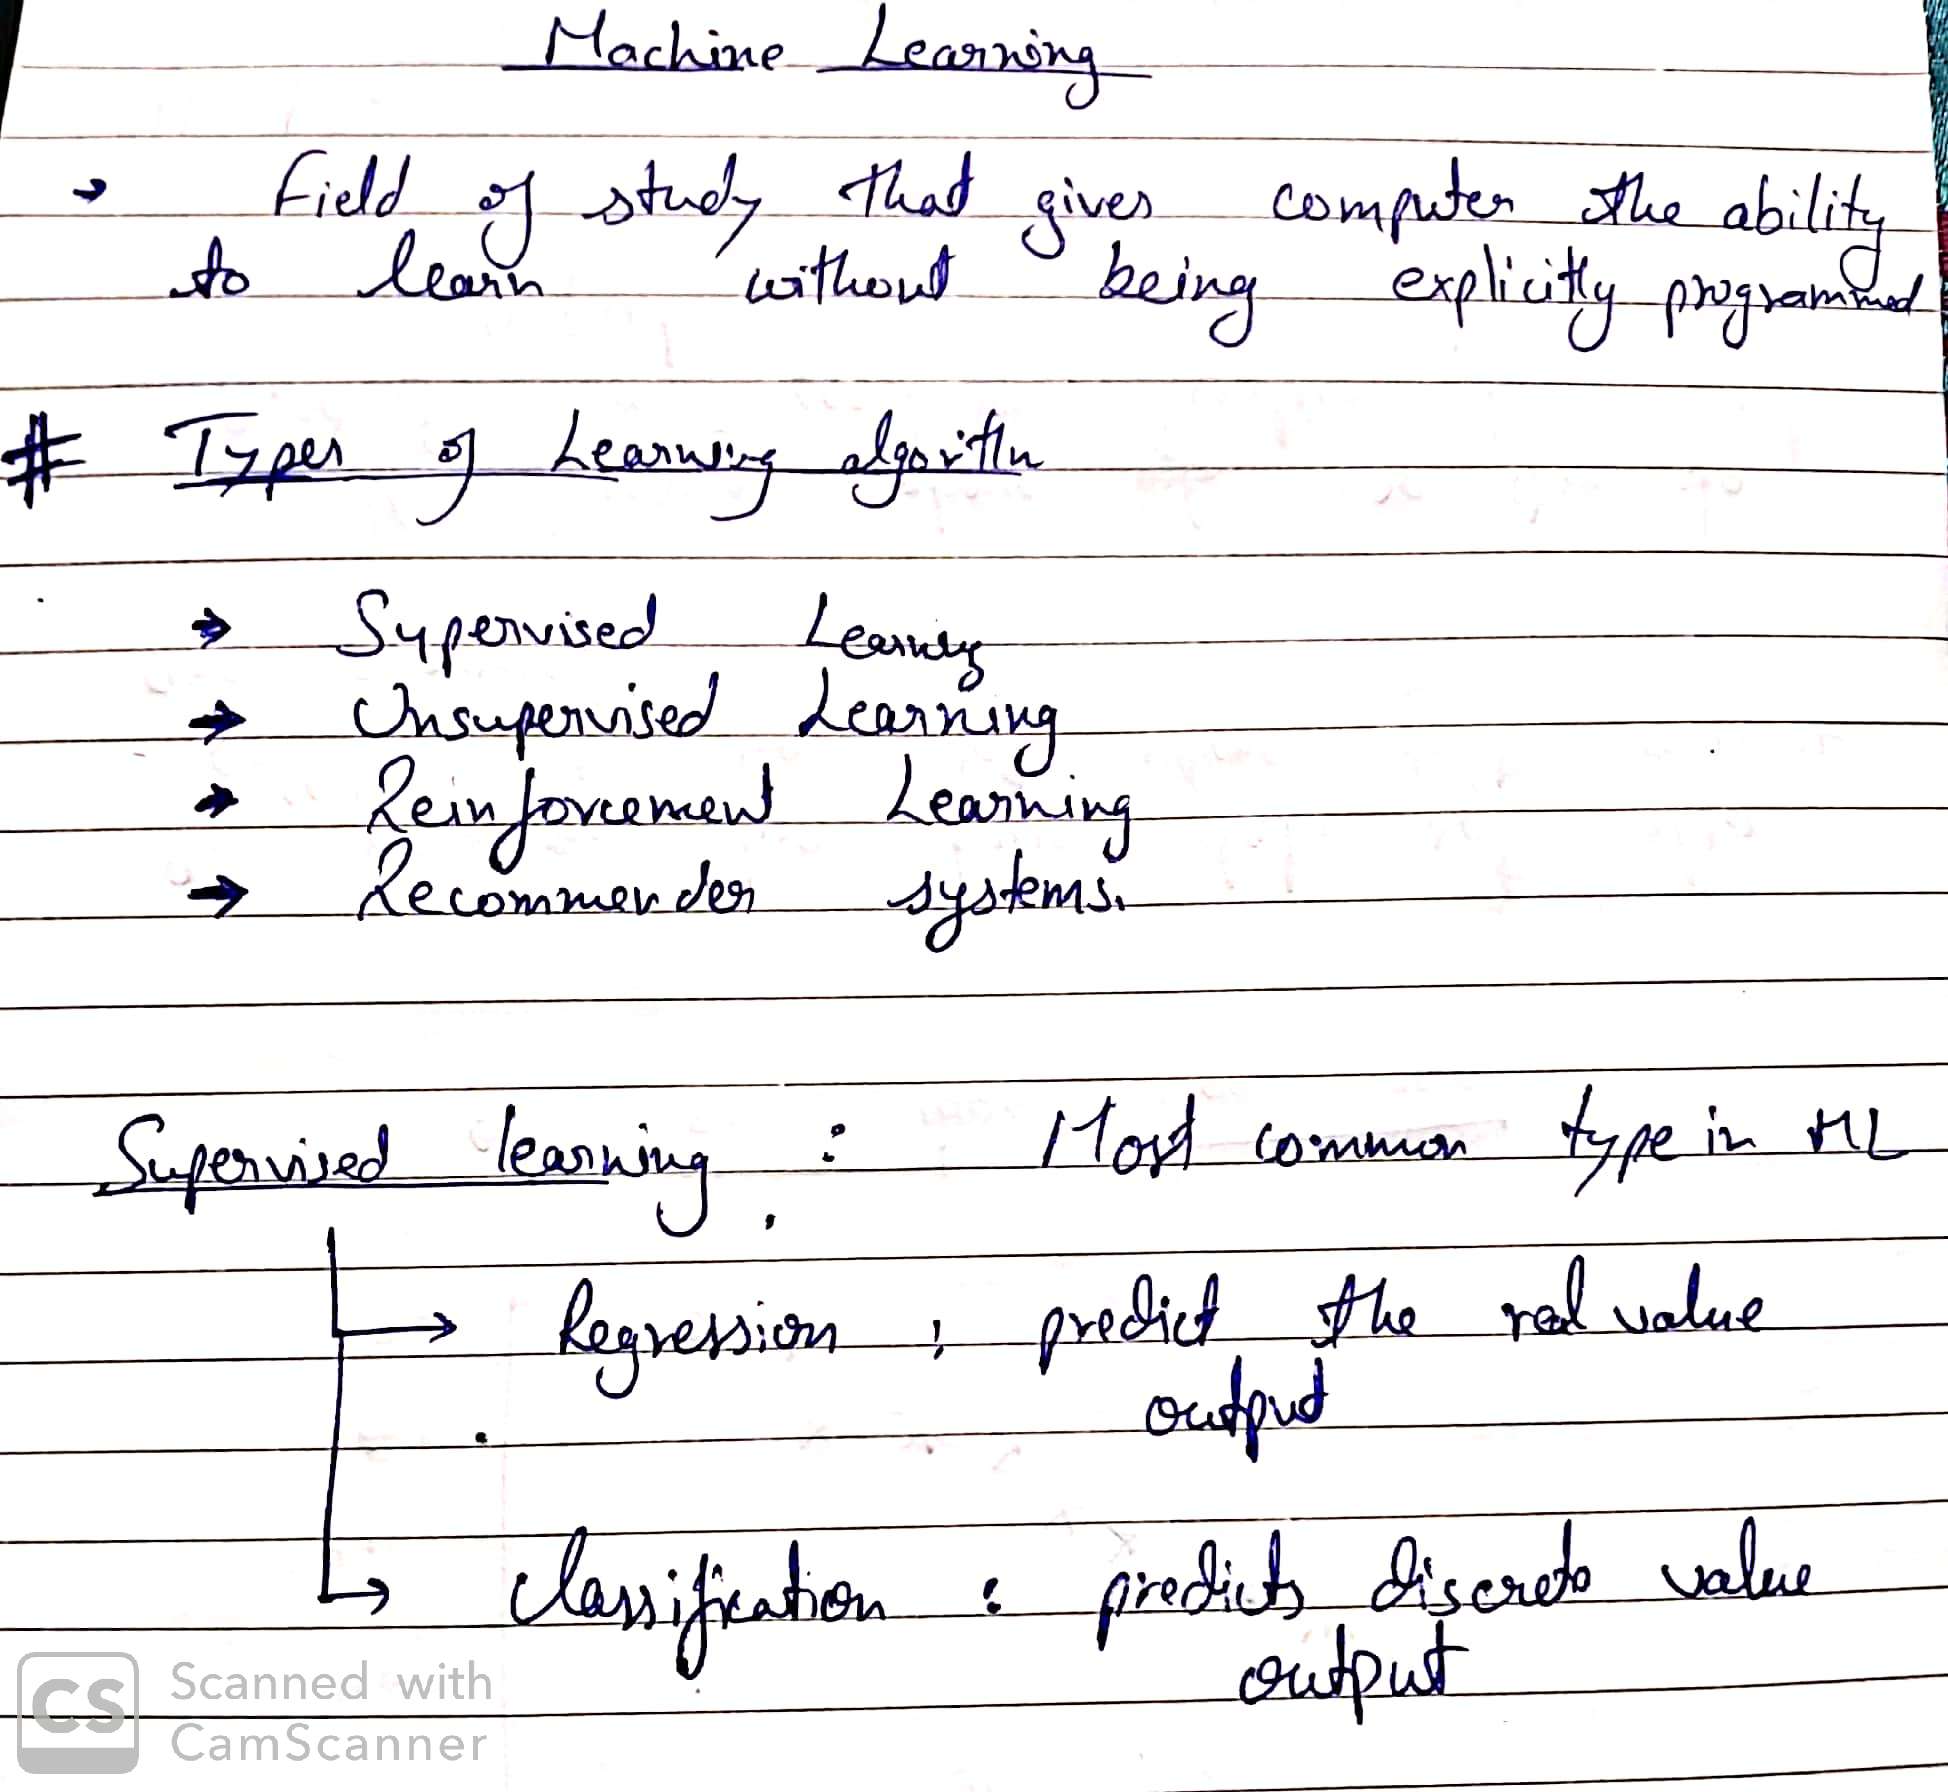 Machine Learning
→ Field of study that gives computer the ability
to learn without being explicitly programmed
# Types of Learning algorithm
→ Supervised Learning
→ Unsupervised Learning
→ Reinforcement Learning
→ Recommender systems.
Supervised learning : Most common type in ML
→ Regression : predict the real value
output
→ Classification : predicts discrete value
output
CS Scanned with
CamScanner